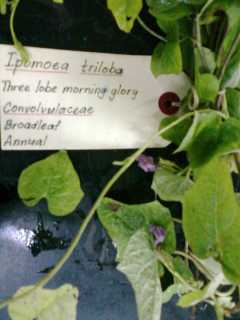 Ipomoea triloba
Three lobe morning glory
Convolvulaceae
Broadleaf
Annual